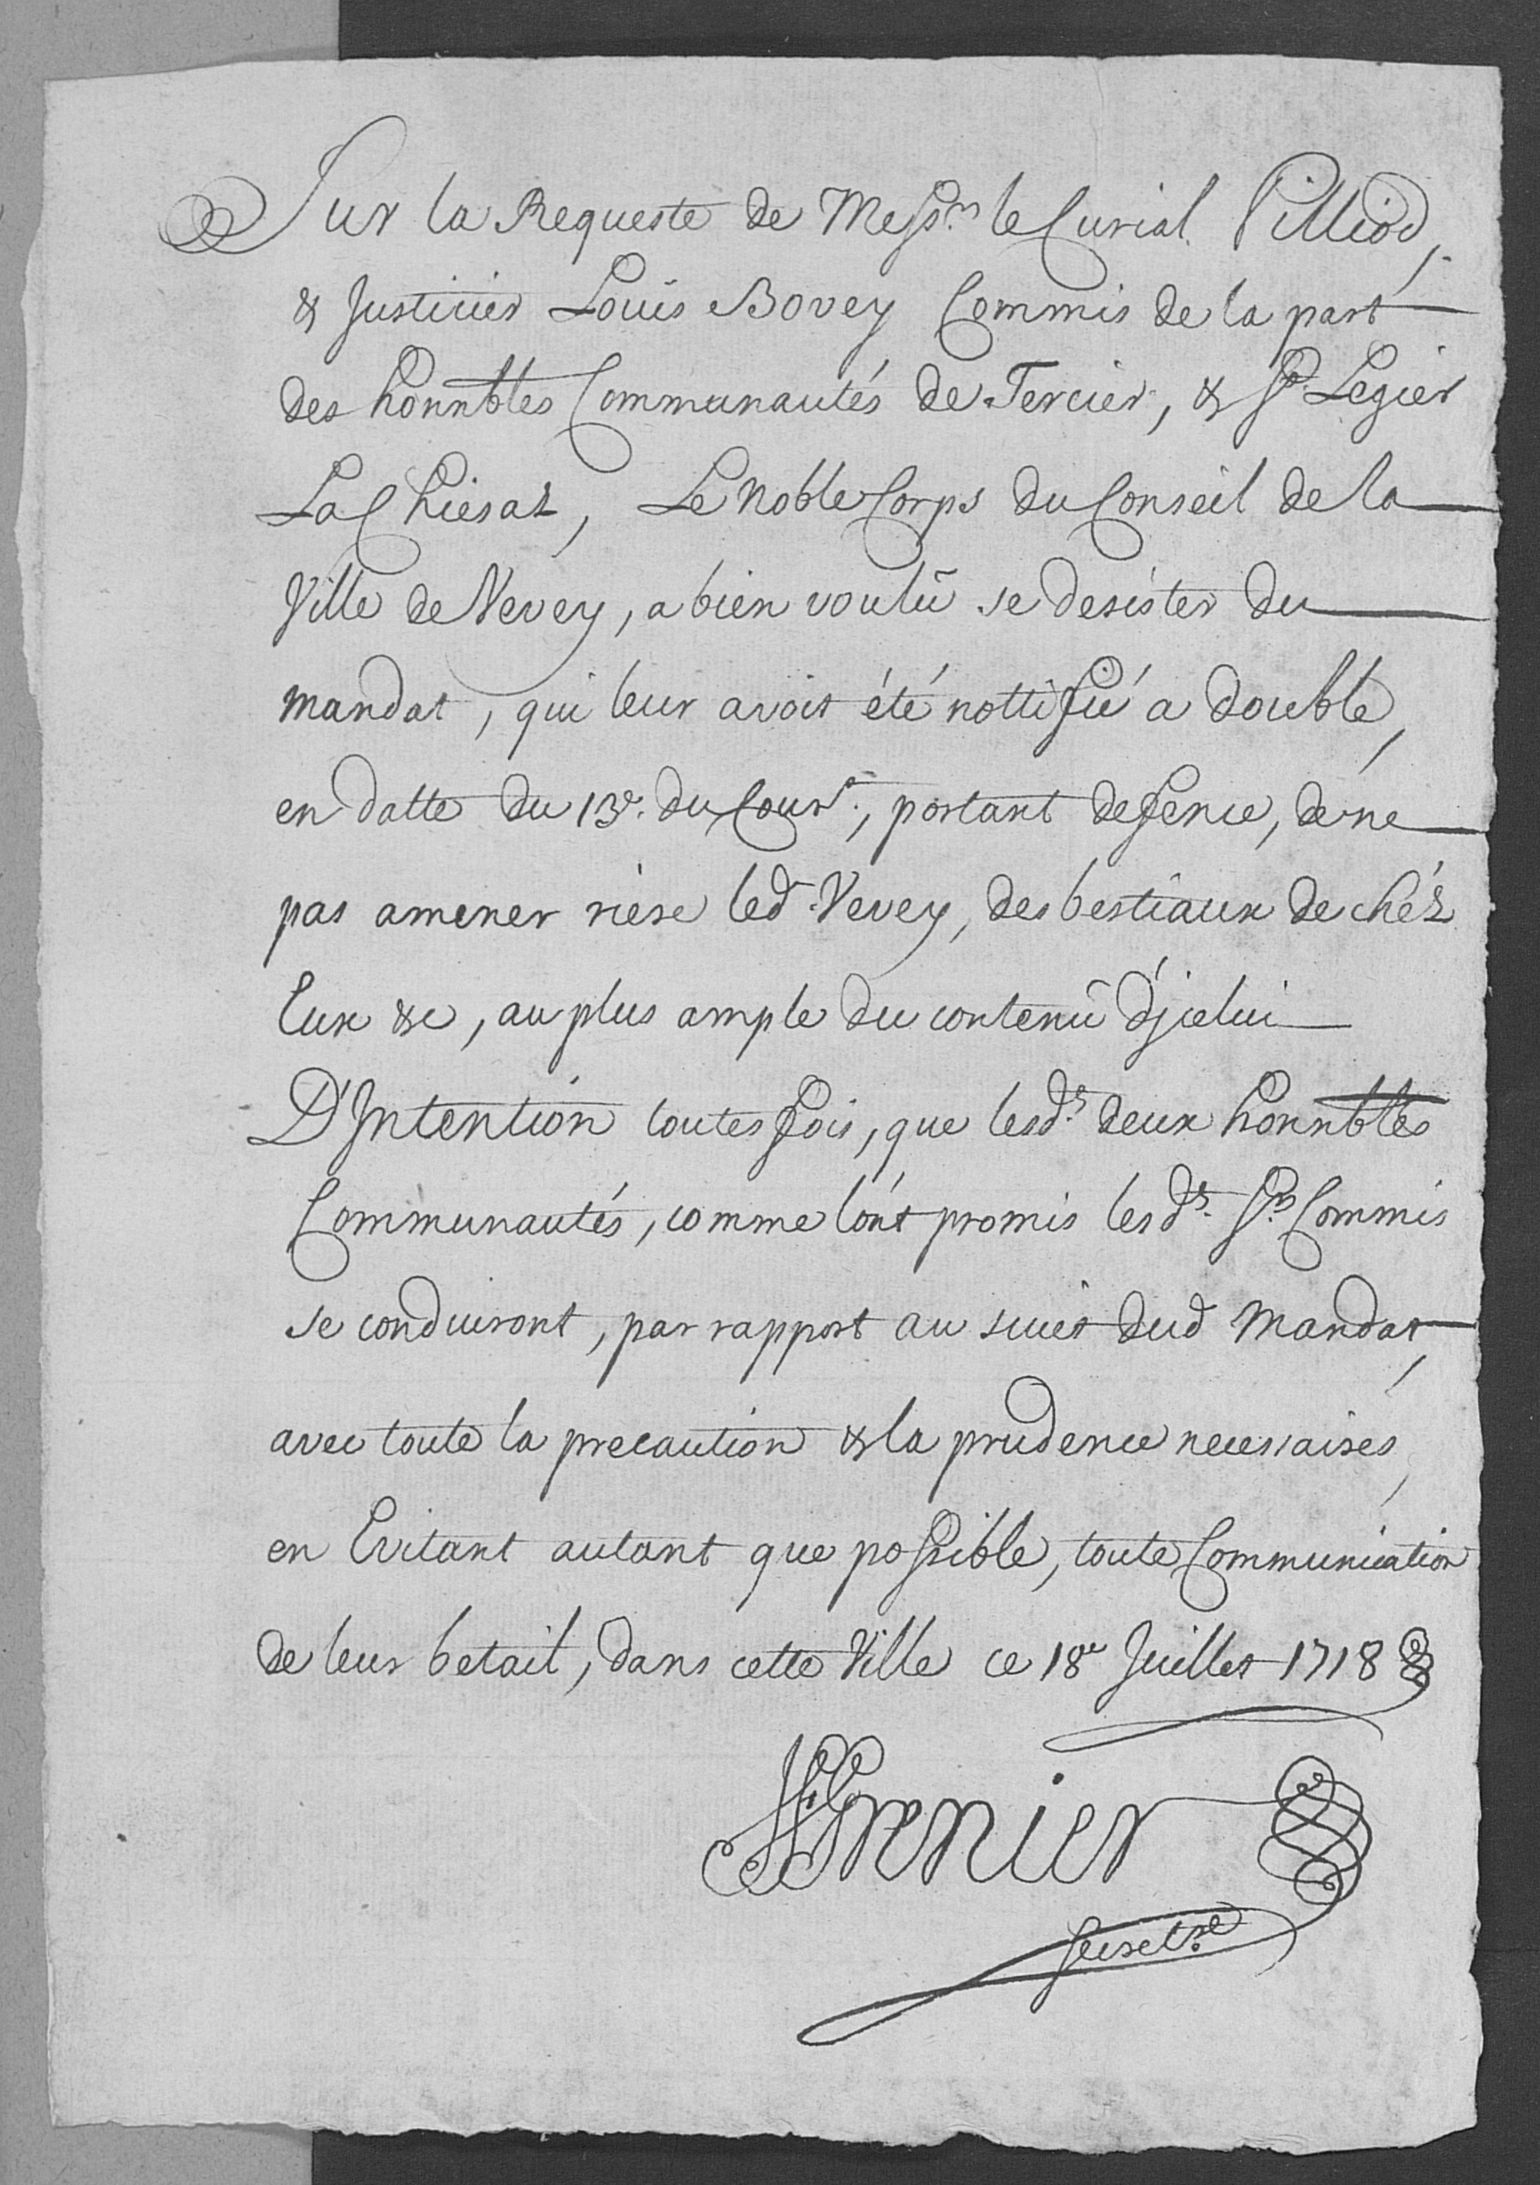 Sur la Requeste de Mess.rs le Curial Pilliod,
& Justicier Louïs Bovey Commis de la part
des honnbles Communautés de Tercier, & St. Legier
La Chiesaz, Le Noble Corps du Conseil de la
Ville de Vevey, a bien voulû se desister du
mandat, qui leur avoit été nottifié a double,
en datte du 13e. du Cour.t, portant defence, de ne
pas amener riere led. Vevey, des bestiaux de chéz
Eux &c, au plus ample du contenû d'jcelui
D'Intention toutesfois, que lesd.s deux honnbles
Communautés, comme l'ont promis lesd.s S.rs Commis
se conduiront, par rapport au sujet dud Mandat,
avec toute la precaution & la prudence necessaires,
en Evitant autant que possible, toute Communication
de leur betail, dans cette Ville ce 18e Juillet 1718
Grenier
Secret.re